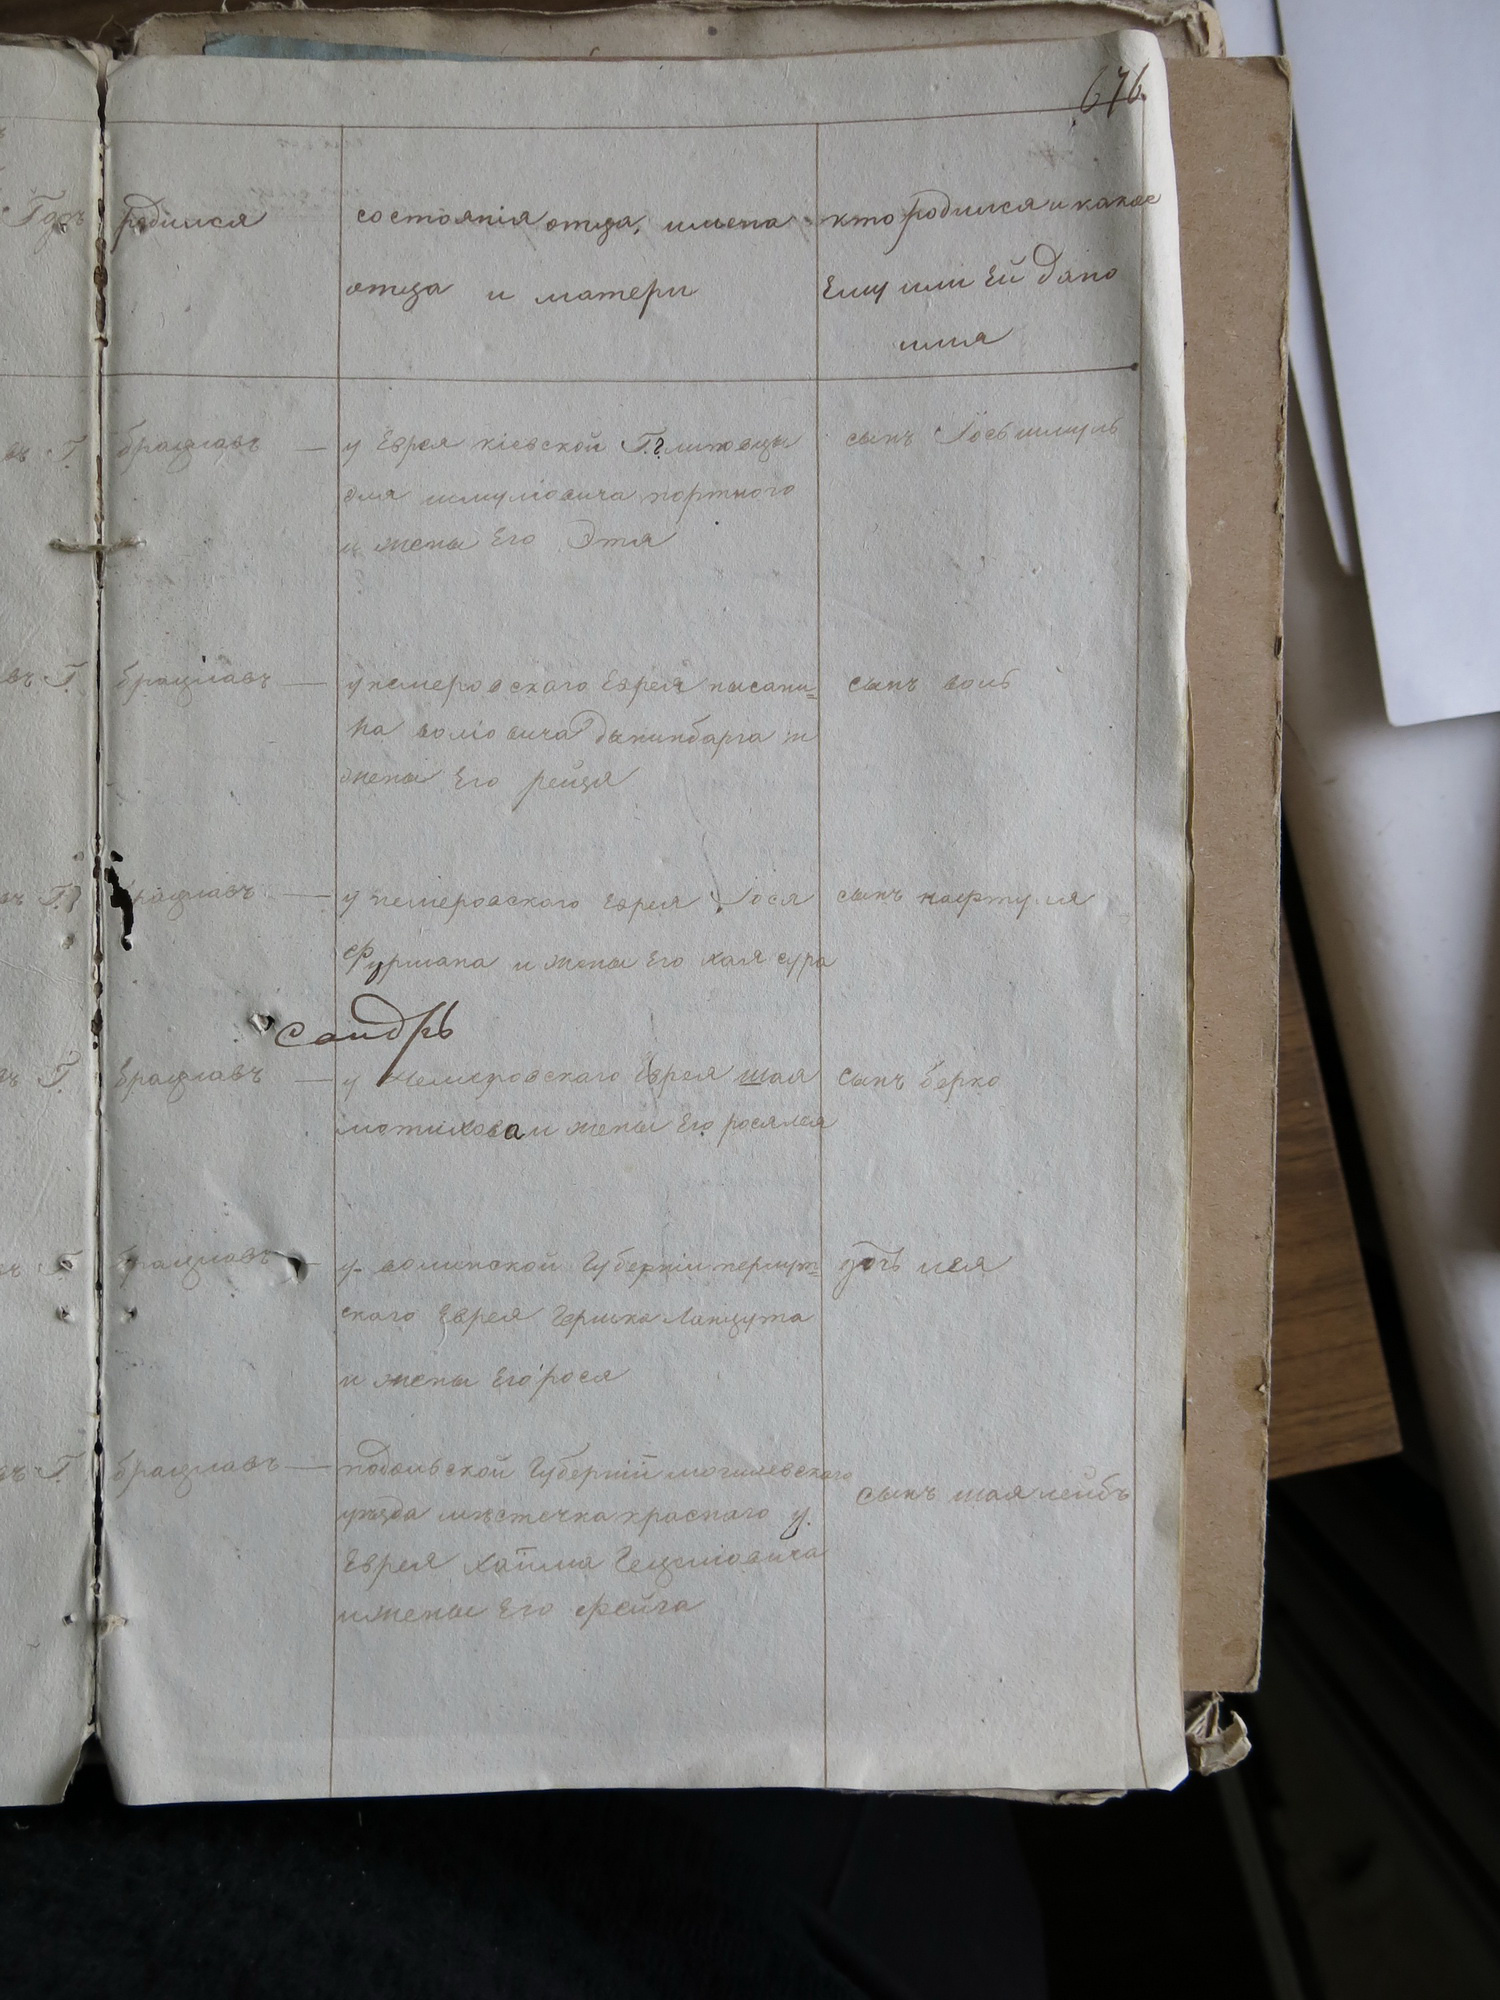 676
Годъ родился
состоянія отца, имена
отца и матери
кто родился и какое
Ему или Ей дано
имя
въ Г. брацлавъ — у Еврея кіевской Г.
шмуліовича портного
и жены Его Этя
сынъ Иосьшмуль
въ Г. брацлавъ — у немеровскаго Еврея нысани=
на воліовича и
жены Его рейця
сынъ воль
въ Г. брацлавъ — у немеровского Еврея Иося
Фурмана и жены Его хая сура
сынъ нафтуля
сандръ
въ Г. брацлавъ — у немеровскаго Еврея шая
и жены Его рося лея
сынъ берко
въ Г. брацлавъ — у волинской Губерніи
скаго Еврея Гершка Ланцута
и жены Его рося
дочь лея
въ Г. брацлавъ — подольской Губерній могилевскаго
уѣзда мѣстечка краснаго у
Еврея хаима Гецшіовича
и жены Его фейга
сынъ шая лейбъ